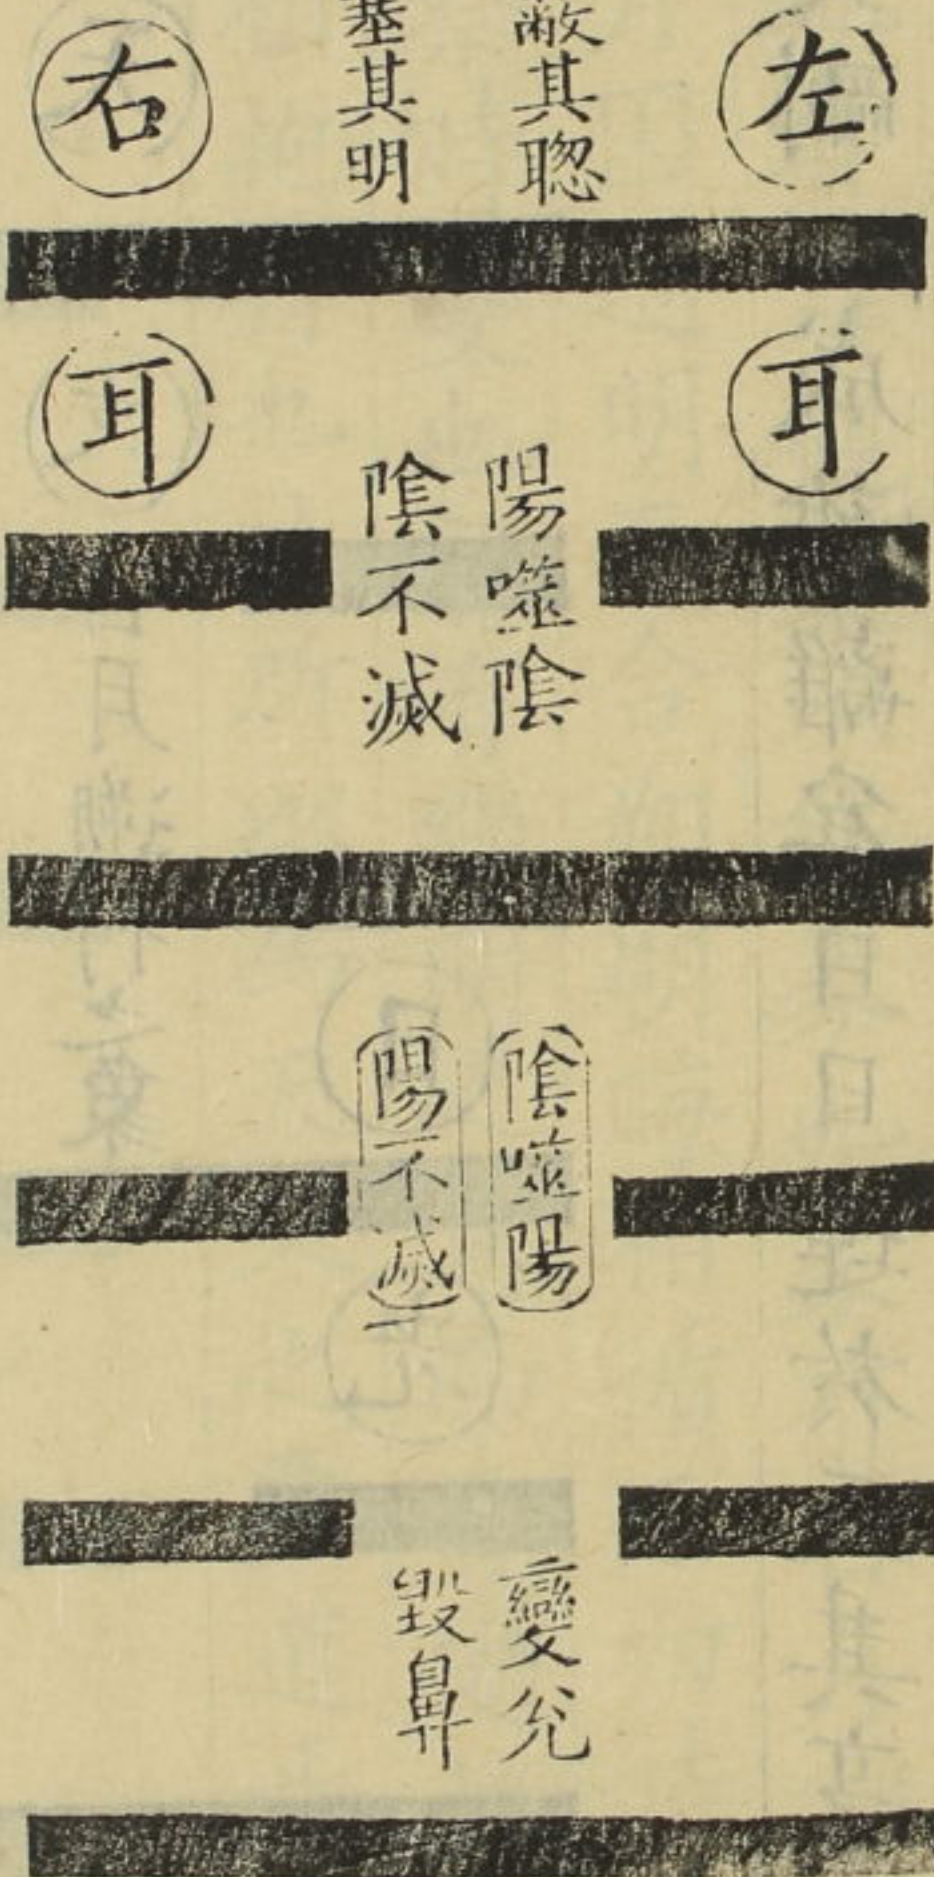 左
其聦
其明
右
耳
耳
陽噬陰
陰不滅
陰噬陽
陽不滅
變兊
毀鼻